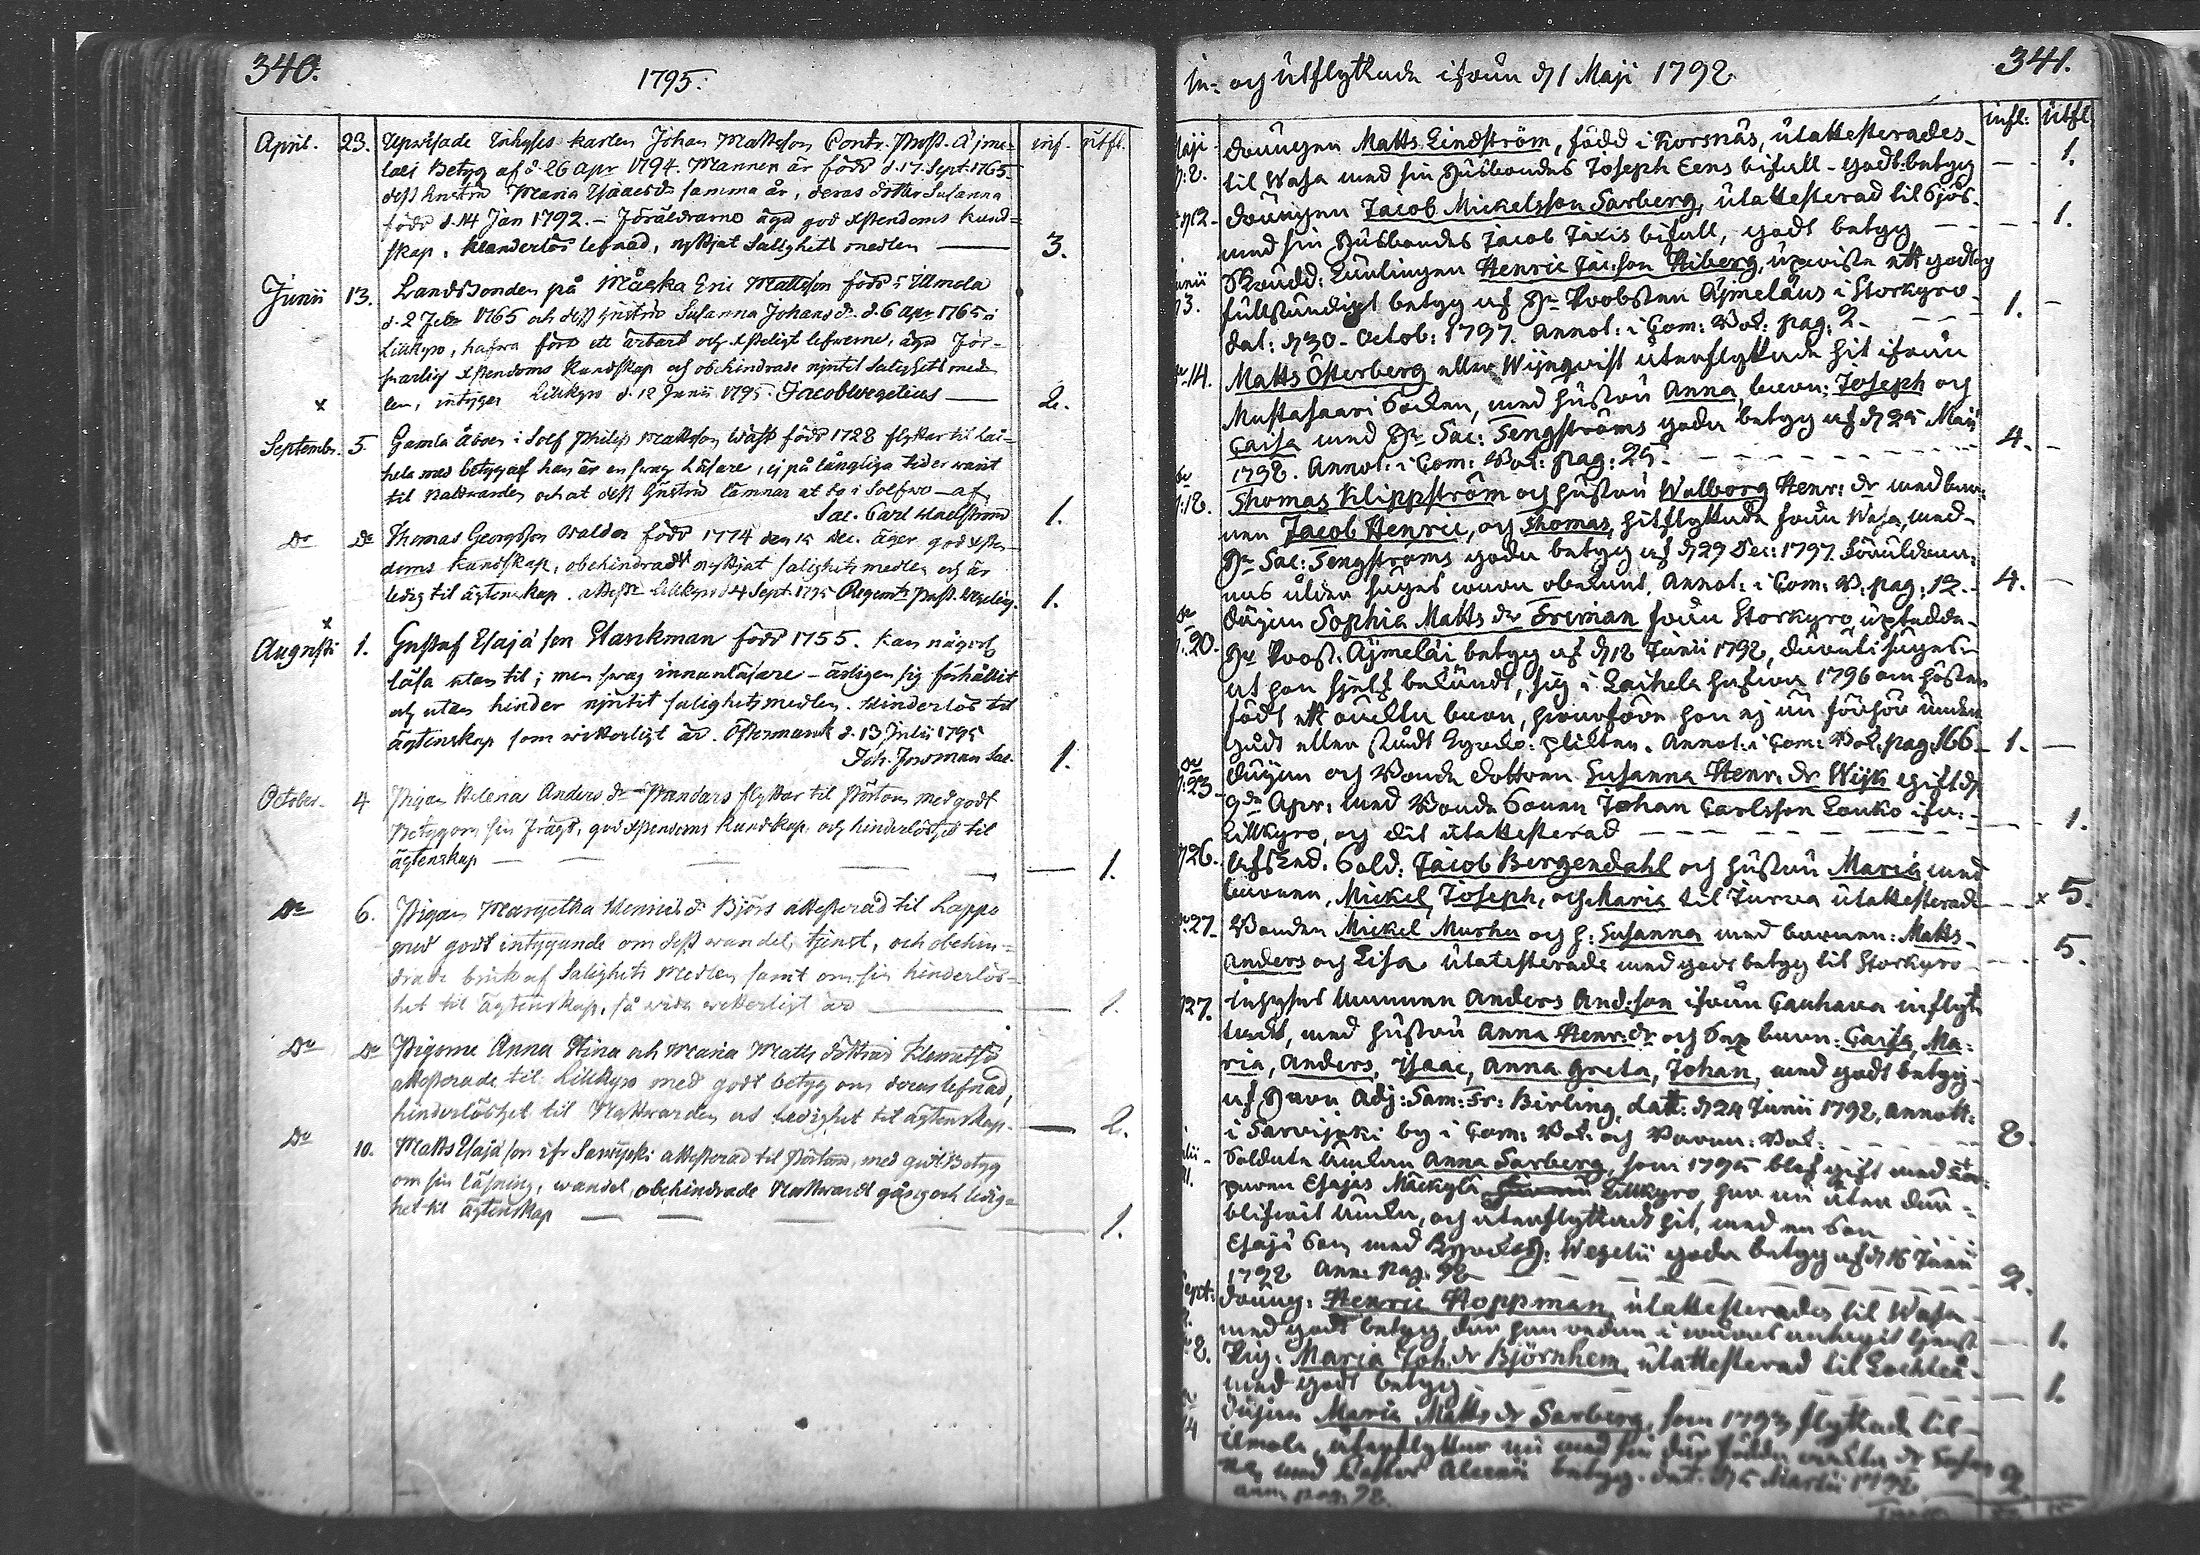 340.
1795.
April. 23. Upwisade Inhyses karlen Johan Mattsson Contr. Prost. Äjme- inf. utfl.
laei Betyg af d. 26 Apr 1794. Mannen är född d. 17. Sept. 1765.
dess hustru Maria Isaacs dr samma år, deras dotter Susanna
född d. 14 Jan 1792. – Föräldrarne äga god xstendoms kund=
skap, klanderlös lefnad, nyttjat Salighets medlen — 3.
Junii 13. Landbonden på Måska Eric Mattsson född i Ilmola
d. 2 Febr 1765 och dess hustru Susanna Johans dr. d. 6 apr 1765 i
Lillkyro, hafwa fört ett ärbart och xsteligt lefwerne, äga för-
swarlig xstendoms kundskap och obehindrade njutit Salighets med-
x len, intygar Lillkyro d. 12 Junii 1795. Jacob Wegelius — 2.
Septembr. 5. Gamla Åboen i Solf Philip Mattsson Wäst född 1728 flyttar til Lai-
hela med betyg af han är en swag Läsare, ej på långliga tider warit
til Nattwarden och at dess hustru lämnar at bo i Solf wo – af
Sac. Carl 1.
Do Do Thomas Georgsson Waldon född 1774 den 15 Dec. äger god xsten-
doms kundskap, obehindradt nyttjat salighets medlen och är
ledig til ägtenskap. attest. Lillkyro d 4 Sept. 1795 Regem:ts Past. Wegelius. 1.
x
Augusti 1. Gustaf Esajæ son Starckman född 1755. kan någorl.
läsa utan til; men swag innanläsare – ärligen sig förhållit
och utan hinder njutit salighets medlen. Hinderlös til
ägtenskap som witterligt är. Östermark d. 13 Julii 1795
Joh. Forsman Sac. 1.
October. 4 Pigan Helena Anders dr Prandars flyttar til Pörtom med godt
Betyg om sin frägd, god xstendoms kundskap, och hinderlöshet til
ägtenskap — — — — 1.
Do 6. Pigan Margetha Henrics dr Björs attesterad til Lappo
med godt intygande om dess wandel, tjenst, och obehin=
drade bruk af Salighets Medlen samt om sin hinderlös=
het til ägtenskap, så wida witterligt är — 1.
Do Do Pigorne Anna Stina och Maria Matts döttrar
attesterade til Lillkyro med godt betyg om deras lefnad,
hinderlöshet til Nattwarden och ledighet til ägtenskap. — 2.
Do 10. Matts Esajæ son ifr Sarwijoki attesterad til Pörtom, med godt Betyg
om sin läsning, wandel, obehindrade Nattwards gång och ledig=
het til ägtenskap — — — — 1.
In- och utflyttade ifrån d 1 Maji 1798. 341.
infl: utfl.
Maji 2. drängen Matts Lindström, född i Korsnäs, utattesterades
til Wasa med sin Husbondes Joseph Eens bifall – godt betyg — 1.
12. drängen Jacob Mickelsson Sarberg, utattesterad til Sjös.
med sin Husbondes Jacob Taxis bifall, godt betyg — 1.
Junii 3. Skrädd: Lärlingen Henric Jac:son Kiberg, upwiste ett godt och
fullständigt betyg af Hr Probsten Äjmelæus i Storkyro
dat: d 30 Octob: 1797. Annot: i Com: Bok: pag: 2. — 1. —
14. Matts Österberg eller Wijnqvist återflyttade hit ifrån
Mustasaari Socken, med hustru Anna, barn: Joseph och
Caisa med Hr Sac: Tengströms goda betyg af d 25 Maji
1798. Annot: i Com: Bok: pag: 25. — 4. —
18. Thomas Klippström och hustru Walborg Henr: dr med bar-
nen Jacob Henric, och Thomas, hitflyttade från Wasa, med
Hr Sac: Tengströms goda betyg af d 29 Dec: 1797. Föräldrar-
nas ålder säges wara obekant. Annot: i Com: B. pag: 12. 4. —
20. Pigan Sophia Matts dr Freman från Storkyro, uptedde
Hr Prost. Äjmelæi betyg af d 12 Junii 1798, däruti säges
at hon sjelf bekändt, sig i Laihela hafwa 1796 om hösten
födt ett oäckta barn, hwarföre hon ej än förhör under
gådt eller städt kyrko: plikten. Annot: i Com: Bok. pag. 166 1. —
23 Pigan och Bonde dottren Susanna Henr. dr Wijk gift d
9 de Apr: med Bonde Sonen Johan Carlsson Lauko ifr:
Lillkyro, och dit utattesterad — 1.
26. Afsked. Sold: Jacob Bergendahl och hustru Maria med
barnen, Mickel, Joseph, och Maria til Jurva utattesterade — x 5.
27. Bonden Mickel Murha och h: Susanna med barnen: Matts
Anders och Lisa utattesterade med godt betyg til Storkyro — 5.
27. Inhyses Mannen Anders And:son ifrån Cauhava inflyt-
tadt, med hustru Anna Henr: dr och Sex barn: Caisa, Ma-
ria, Anders, Isaac, Anna Greta, Johan, med godt betyg
af Herr Adj: Sam: Fr: Birling, dat: d 24 Junii 1798, annott:
i Sarvijoki by i Com: Bok: och Barn: Bok: — 8.
Soldate Änkan Anna Sarberg, som 1795 blef gift med Kor-
paren Esajas Mäckylä Lillkyro, har nu åter där-
blifwit änka, och återflyttadt hit, med en Son
Esajæ Son, med Kyrckoh: Wegelii goda betyg af d 16 Junii
1798 Ann. Pag. 98 — 2.
Sept: dräng: Henric Hoppman, utattesterades til Wasa
med godt betyg, där han redan i wåras antagit tjenst — 1.
8. Pig: Maria Joh. dr Björnhem, utattesterad til Lochteå
med godt betyg — 1.
14 Pigan Maria Matts dr Sarberg, som 1793 flyttade til
Ilmola, återflyttar nu med sin där födda oäckta dr Susan
na, med Pastor Alcenii betyg. dat. d 5 Martii 1798. 2.
ann. pag. 98.